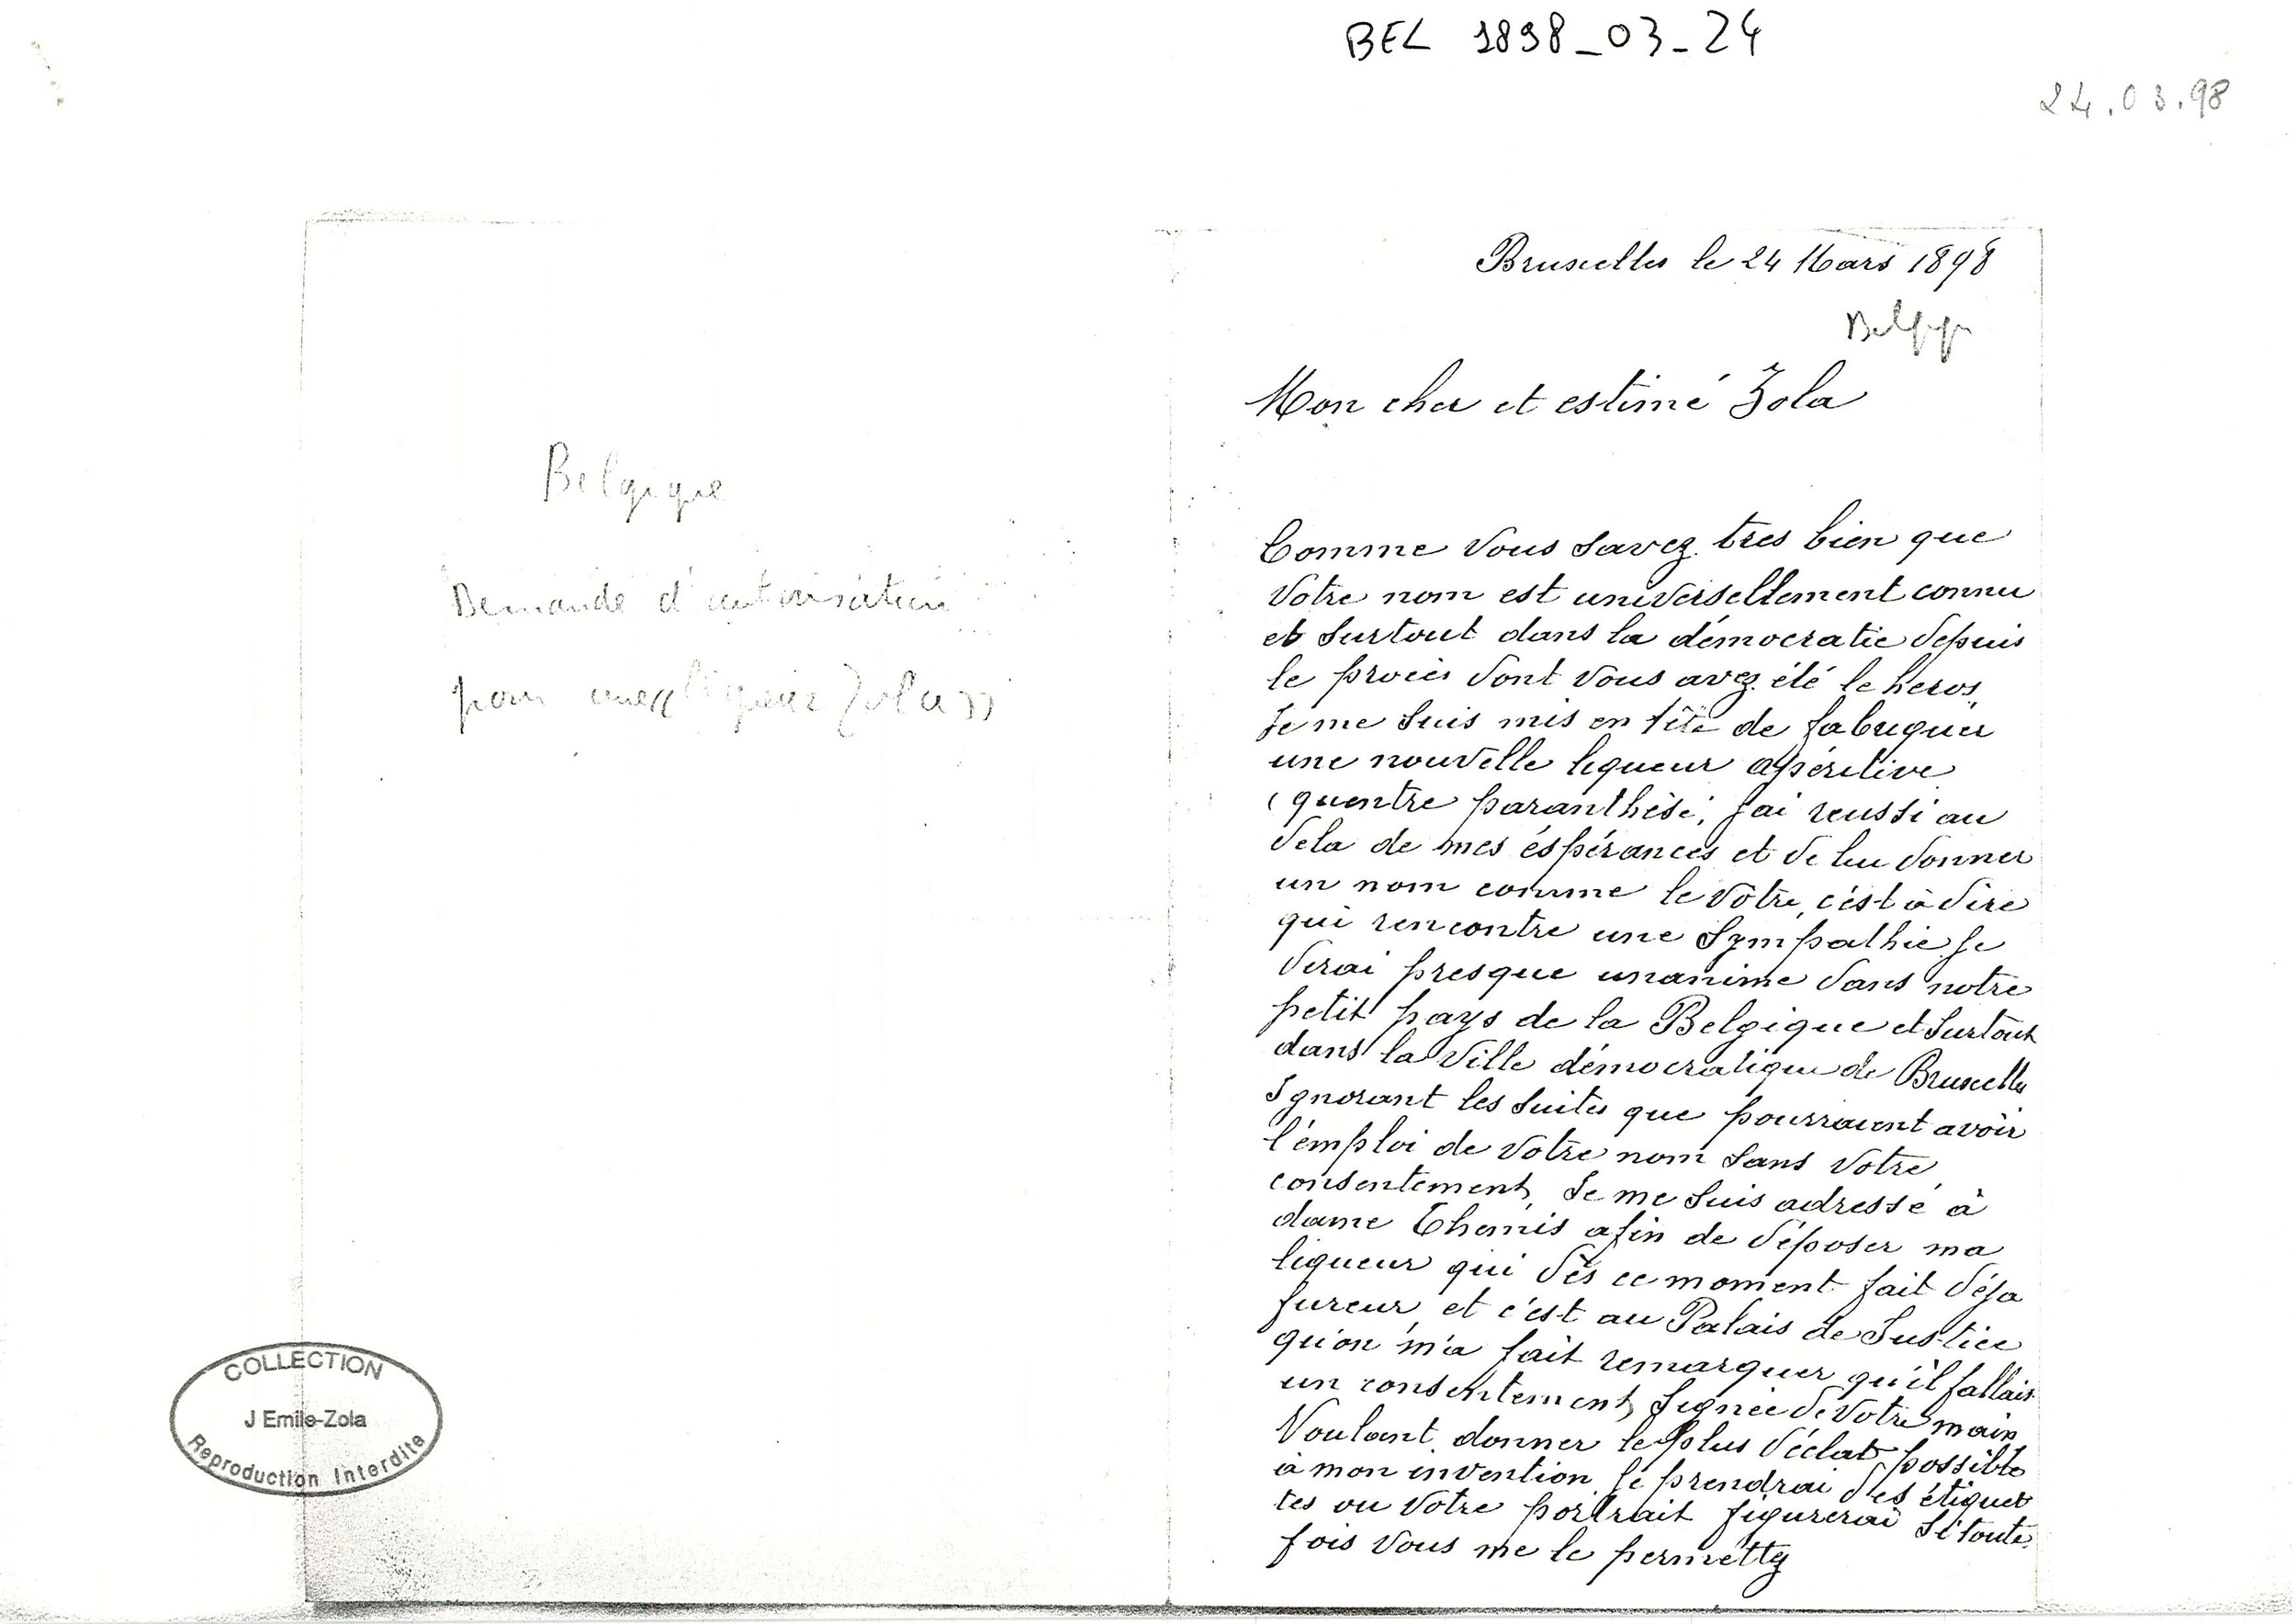 BEL 1898_03_24
24.03.98
Belgique
Demande d'autorisation
pour une «liqueur Zola»
COLLECTION
J Emile-Zola
Reproduction Interdite
Bruxelles le 24 Mars 1898
Belgique
Mon cher et estimé Zola
Comme vous savez tres bien que
votre nom est universellement connu
et surtout dans la démocratie depuis
le procès dont vous avez été le heros,
Je me suis mis en tête de fabriquer
une nouvelle liqueur apéritive
(quentre paranthèse, j'ai reussi au
dela de mes éspérances et de lui donner
un nom comme le vôtre, c'est à dire
qui rencontre une sympathie je
dirai presque unanime dans notre
petit pays de la Belgique et surtout
dans la ville démocratique de Bruxelles
Ignorant les suites que pourraient avoir
l'émploi de votre nom sans votre
consentement, Je me suis adressé à
dame Themis afin de déposer ma
liqueur qui dès ce moment fait déja
fureur, et c'est au Palais de Justice
qu'on m'a fait remarquer qu'il fallait
un consentement signée de votre main
Voulant donner le plus d'éclat possible
à mon invention je prendrai des étiquet
tes ou votre portrait figurerai si toute
fois vous me le permettez